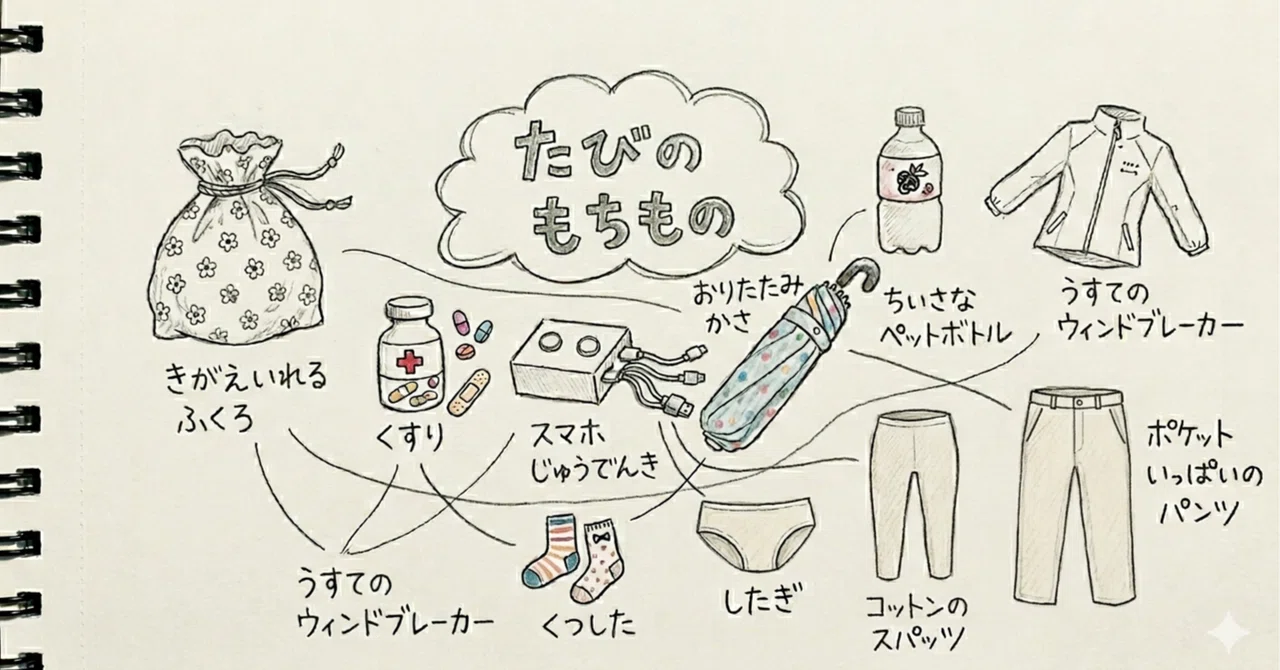 たびの
もちもの
きがえいれる
ふくろ
くすり
スマホ
じゅうでんき
おりたたみ
かさ
ちいさな
ペットボトル
うすての
ウィンドブレーカー
ポケット
いっぱいの
パンツ
うすての
ウィンドブレーカー
くつした
したぎ
コットンの
スパッツ